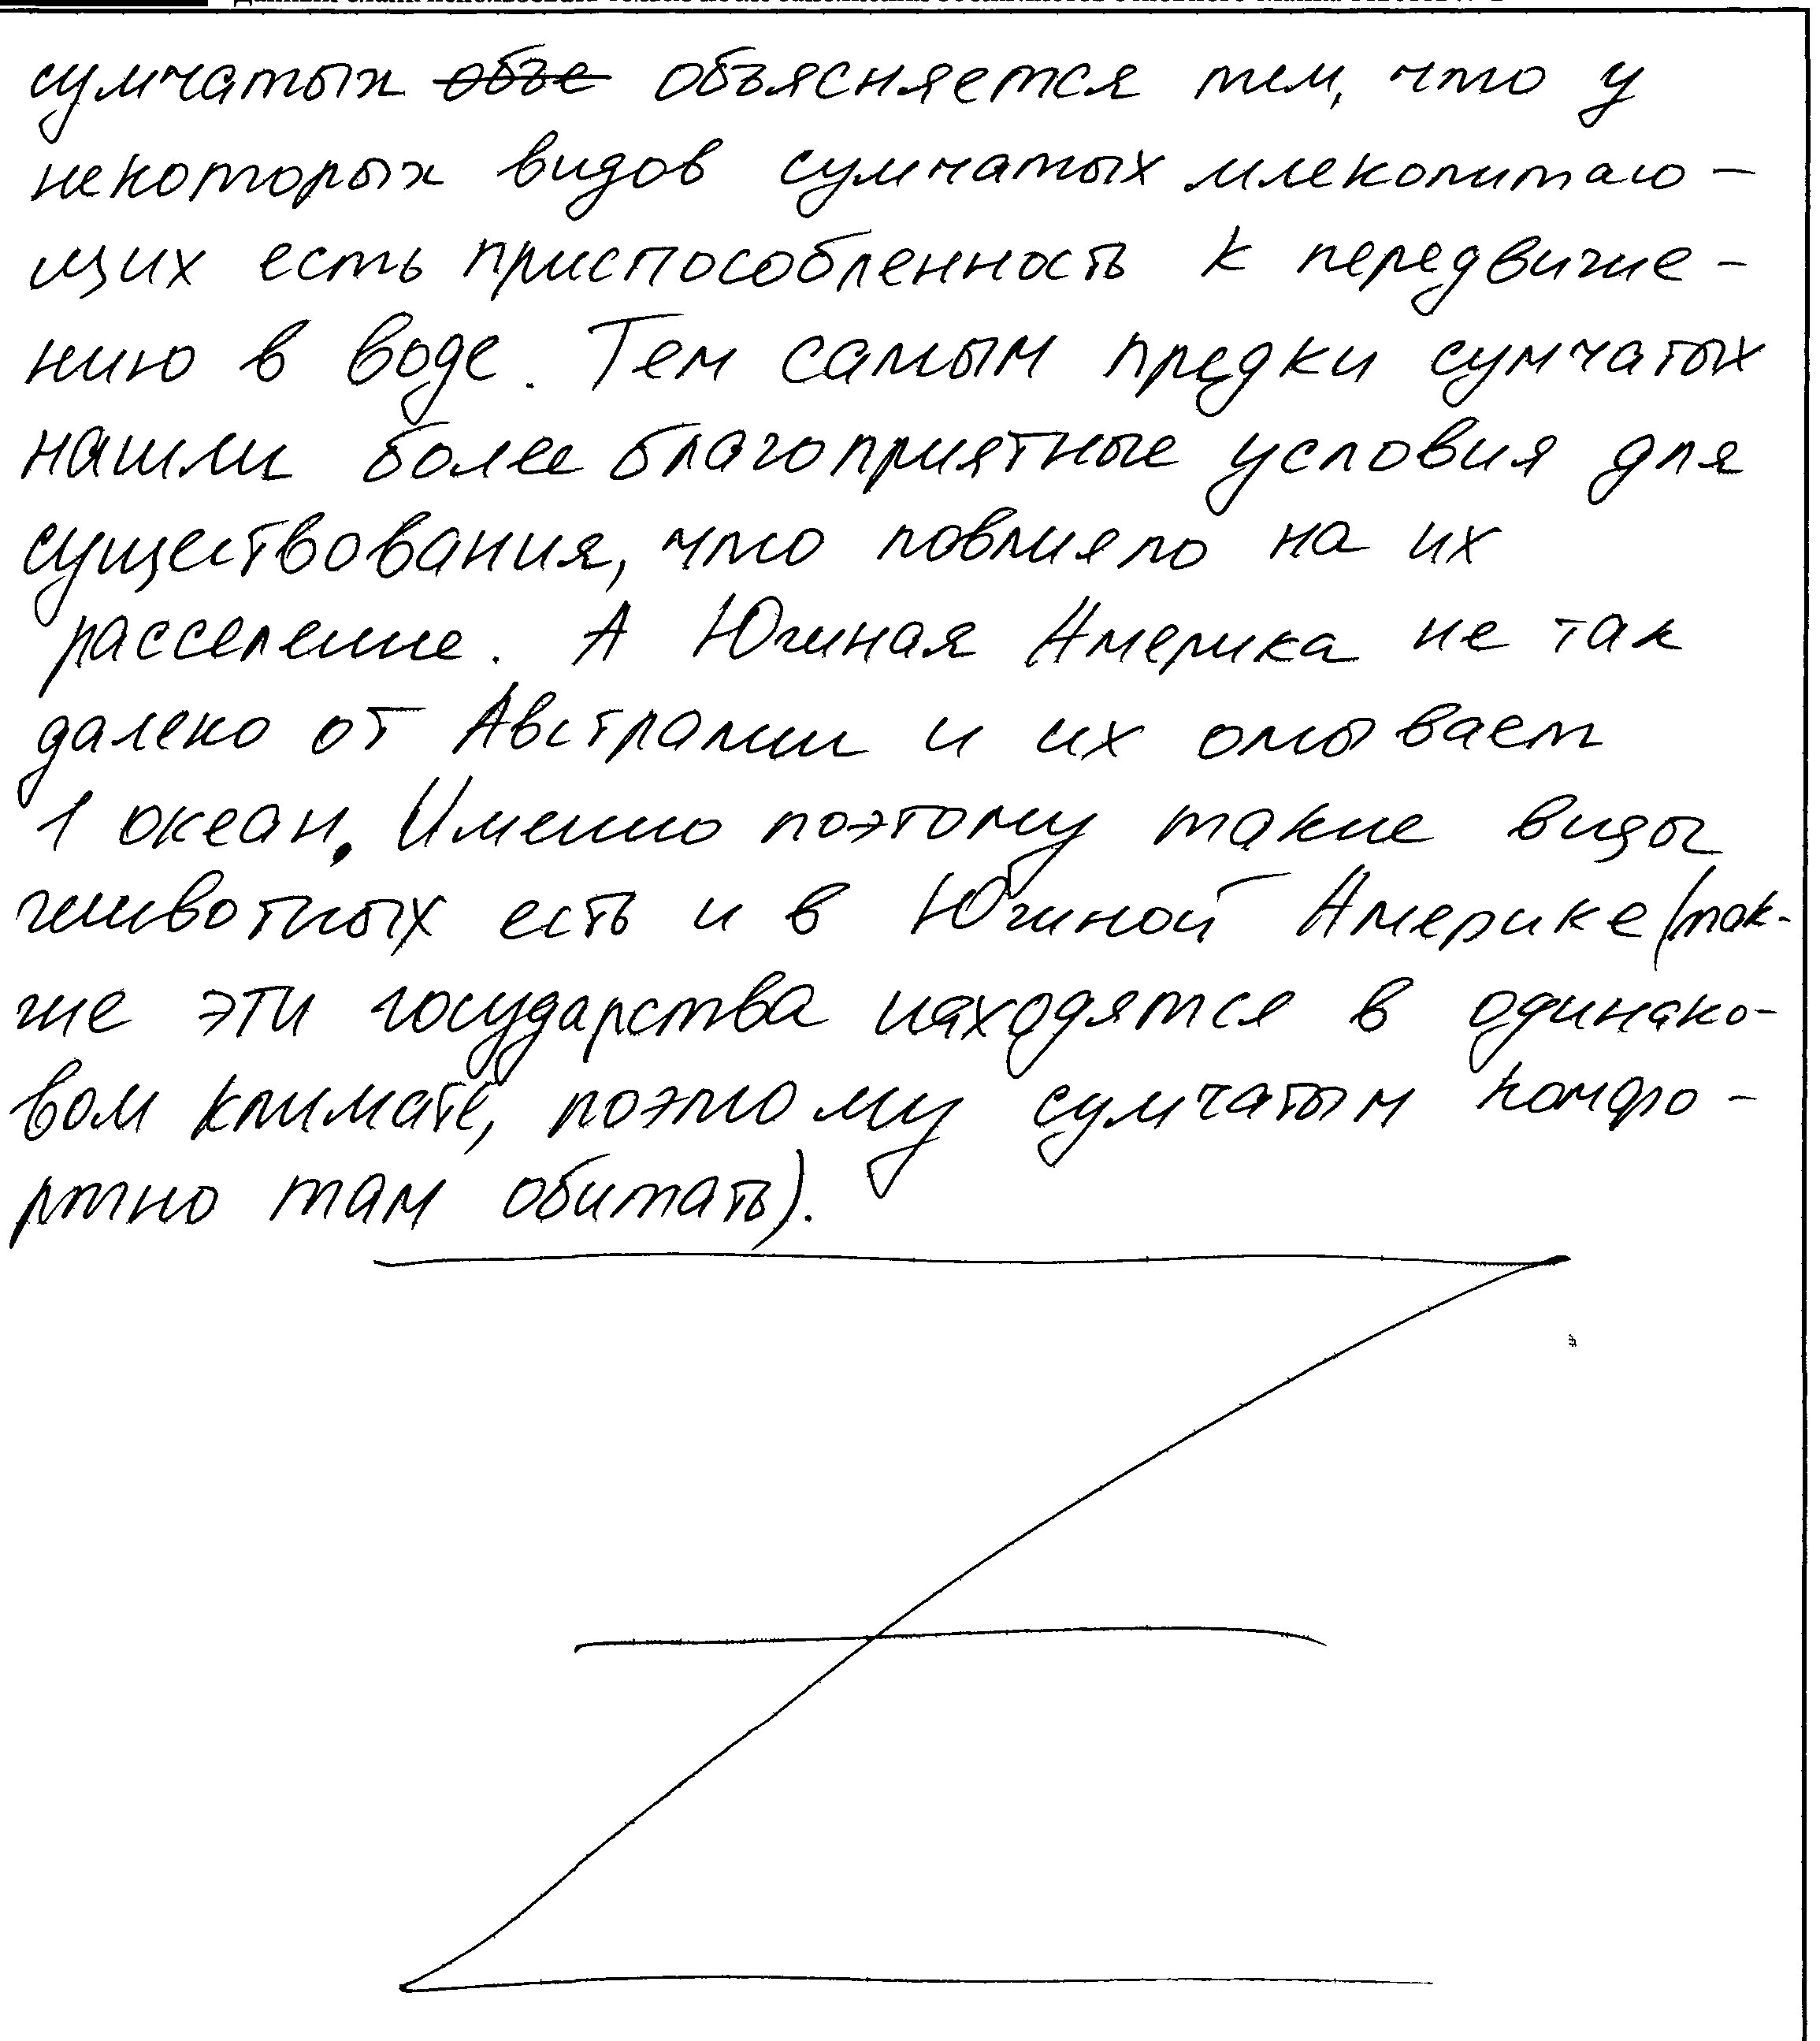 сумчатых ~~объе~~ объясняется тем, что у
некоторых видов сумчатых млекопитаю-
щих есть приспособленность к передвиже-
нию в воде. Тем самым предки сумчатых
нашли более благоприятные условия для
существования, что повлияло на их
расселение. А Южная Америка не так
далеко от Австралии и их омывает
1 океан. Именно поэтому такие виды
животных есть и в Южной Америке (так-
же эти государства находятся в одинако-
вом климате, поэтому сумчатым комфо-
ртно там обитать).